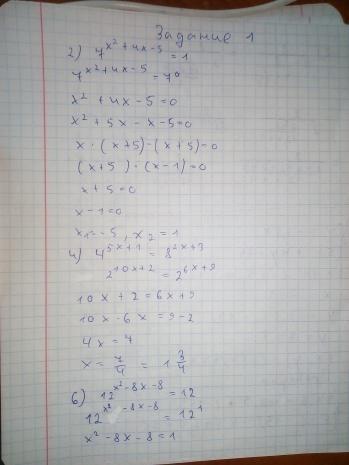 Задание 1
2) 7^{x²+4x-5} = 1
7^{x²+4x-5} = 7⁰
x² + 4x - 5 = 0
x² + 5x - x - 5 = 0
x · (x+5) - (x+5) = 0
(x+5) · (x-1) = 0
x + 5 = 0
x - 1 = 0
x₁ = -5, x₂ = 1
4) 4^{5x+1} = 8^{2x+3}
2^{10x+2} = 2^{6x+9}
10x + 2 = 6x + 9
10x - 6x = 9 - 2
4x = 7
x = 7/4 = 1 3/4
6) 12^{x²-8x-8} = 12
12^{x²-8x-8} = 12¹
x² - 8x - 8 = 1